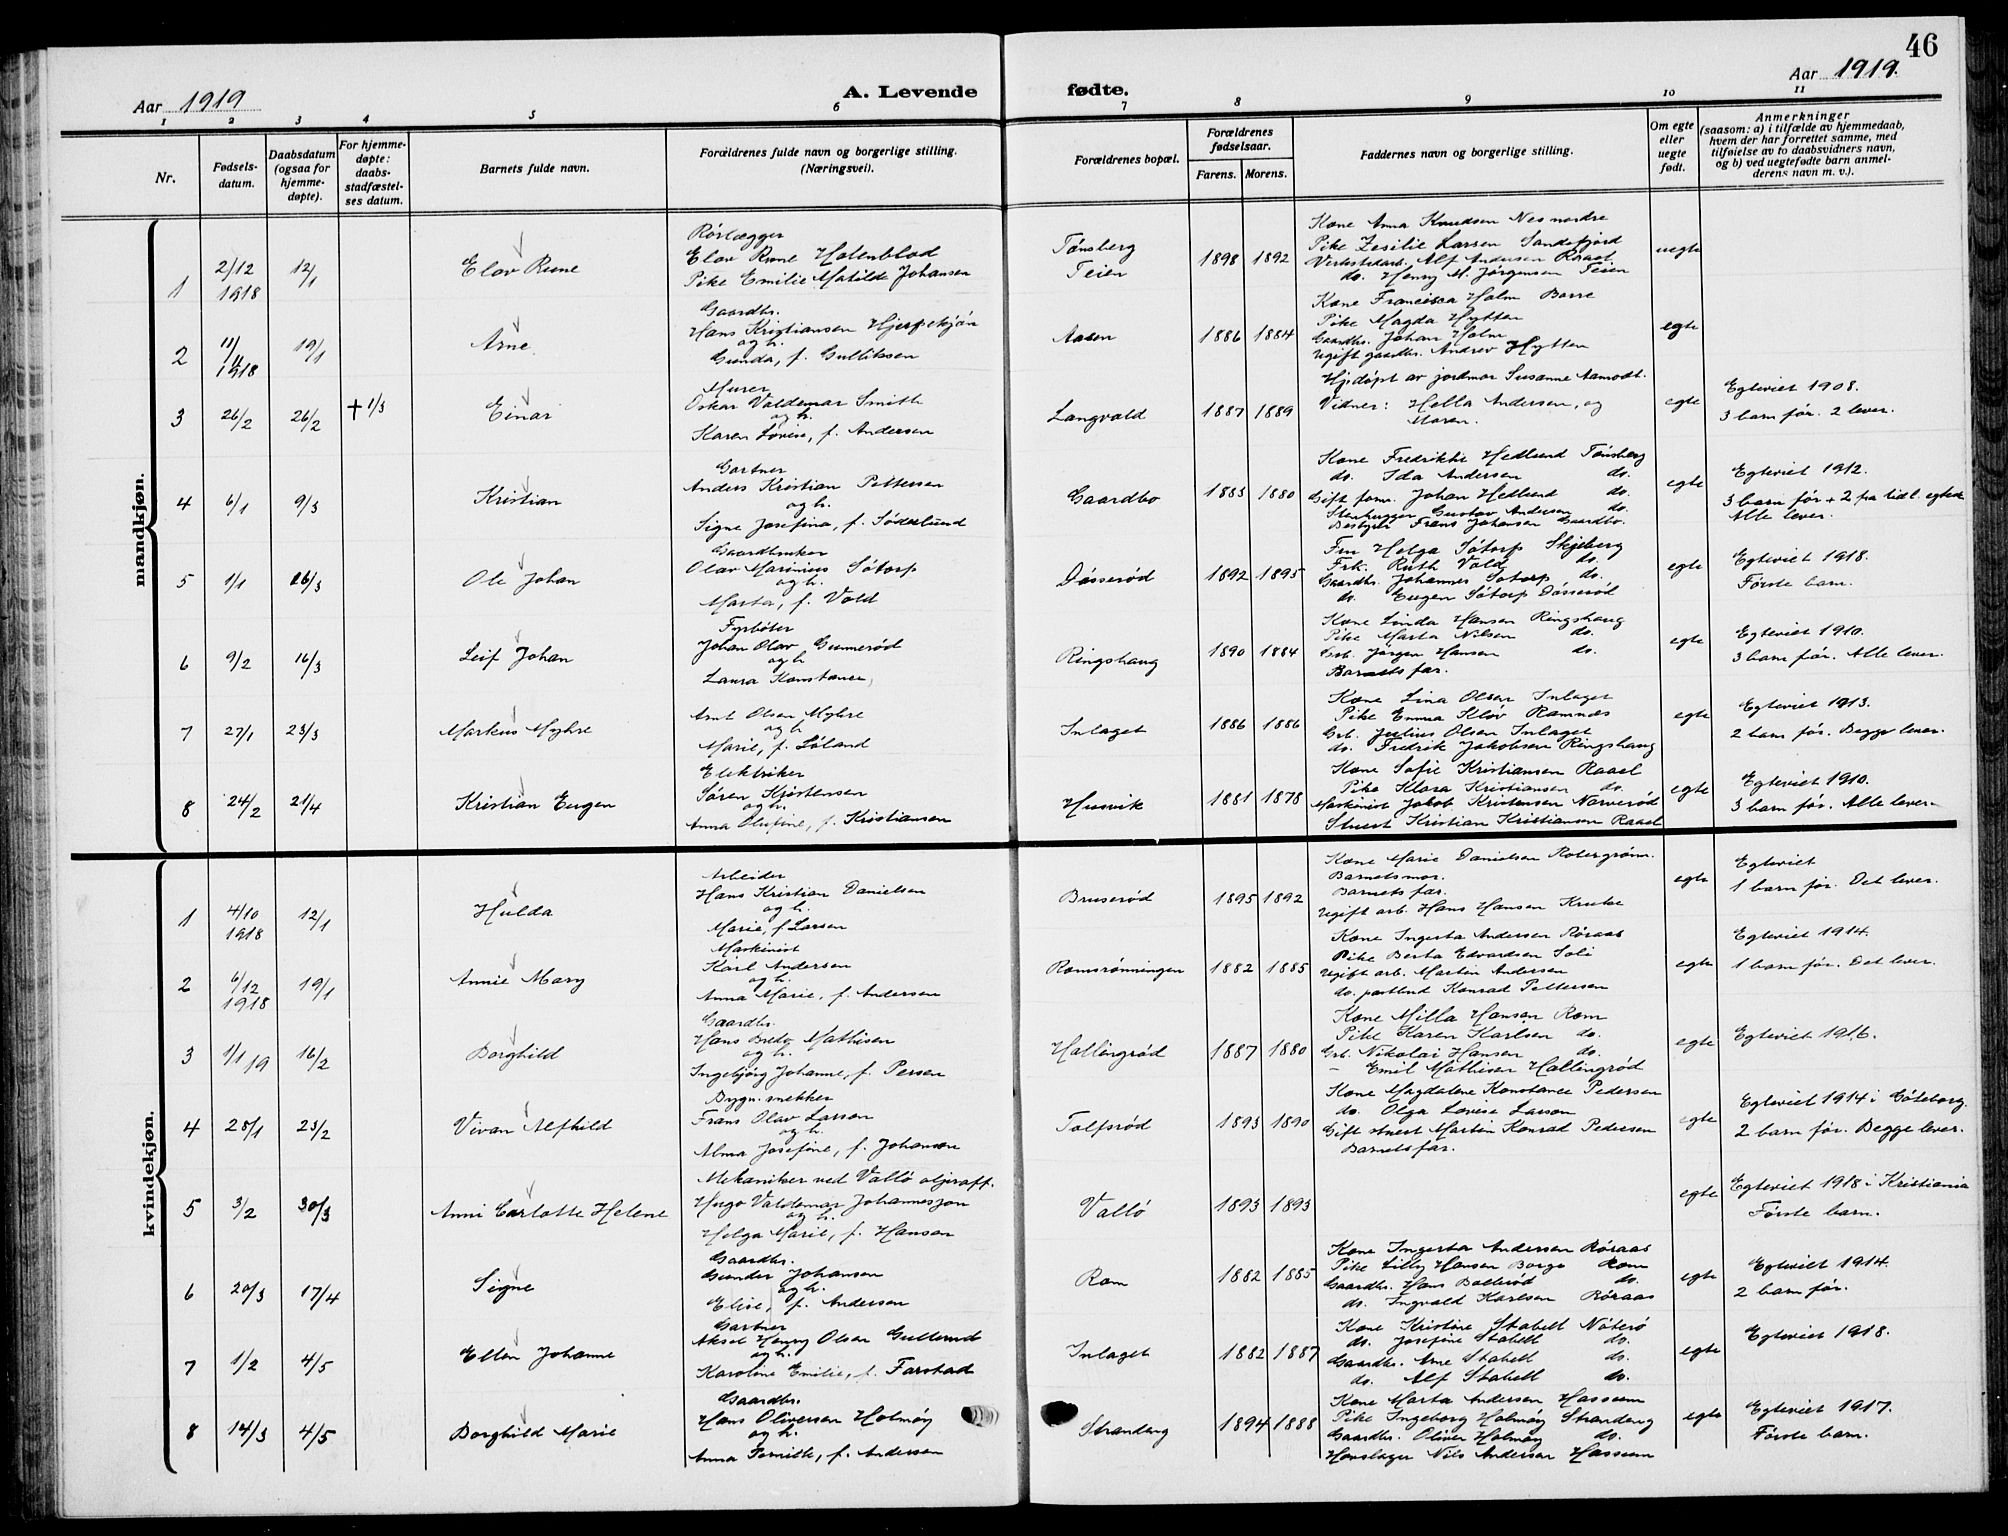 46
Aar 1919
A. Levende fødte.
Aar 1919.
1 2 3 4 5 6 7 8 9 10 11
Nr.
Fødsels-
datum.
Daabsdatum
(ogsaa for
hjemme-
døpte).
For hjemme-
døpte:
daabs-
stadfæstel-
ses datum.
Barnets fulde navn.
Forældrenes fulde navn og borgerlige stilling.
(Næringsvei).
Forældrenes bopæl.
Forældrenes
fødselsaar.
Farens. Morens.
Faddernes navn og borgerlige stilling.
Om egte
eller
uegte
født.
Anmerkninger
(saasom: a) i tilfælde av hjemmedaab,
hvem der har forrettet samme, med
tilføielse av to daabsvidners navn,
og b) ved uegtefødte barn anmel-
derens navn m. v.).
mandkjøn.
1 2/12 1918 12/1 Elav Rune
Rørlægger
Elav Rune Holenblad
Pike Emilie Matilde Johansen
Tønsberg
Teien
1898 1892
Kone Anna Knudsen Nes nordre
Pike Zesilie Larsen Sandefjord
Verkstedarb. Alf Andersen Raael
do. Henry M. Jørgensen Teien
uegte
2 11/11 1918 19/1 Arne
Gaardbr.
Hans Kristiansen Hjerpekjøn
og h.
Gunda, f. Gullitssen
Aasen
1886 1884
Kone Francisca Holm Borre
Pike Magda Hytten
Gaardbr. Johan Holm
Ugift gaardbr. Andrev Hytten
egte
3 26/2 26/2 † 1/3 Einar
Murer
Oskar Valdemar Smith
og h.
Karen Lovise, f. Andersen
Langvald
1887 1889
Hjdøpt av jordmor Susanne Aamodt.
Vidner: Hella Andersen, og
Maren.
egte
Egteviet 1908.
3 barn før. 2 lever.
4 6/1 9/3 Kristian
Gartner
Anders Kristian Pettersen
og h.
Signe Josefina, f. Søderlund
Gaardbo
1883 1880
Kone Fredrikke Hedlund Tønsberg
do. Ida Andersen do.
Gift form. Johan Hedlund do.
Stenhugger Gustav Andersen do.
Bestyrer Frans Johansen Gaardbo.
egte
Egteviet 1912.
3 barn før + 2 fra tidl. egtesk.
Alle lever.
5 1/1 26/3 Ole Johan
Gaardbruker
Olav Marinius Søtorp
og h.
Marta, f. Vold
Døsserød
1892 1895
Fru Helga Søtorp Skjeberg
Frk. Ruth Vold do.
Gaardbr. Johannes Søtorp do.
do. Eugen Søtorp Døsserød
egte
Egteviet 1918.
Første barn.
6 9/2 16/3 Leif Johan
Fyrbøter
Johan Olav Gunnerød
og h.
Laura Konstance,
Ringshaug
1890 1884
Kone Linda Hansen Ringshaug
Pike Marta Nilsen do.
Grb. Jørgen Hansen do.
Barnets far.
egte
Egteviet 1910.
3 barn før. Alle lever.
7 27/1 23/3 Markus Myhre
Arnt Olsen Myhre
og h.
Marie, f. Løland
Inlaget
1886 1886
Kone Lina Olsen Inlaget
Pike Emma Kløv Ramnæs
Grb. Julius Olsen Inlaget
do. Fredrik Jakobsen Ringshaug
egte
Egteviet 1913.
2 barn før. Begge lever.
8 24/2 21/4 Kristian Eugen
Elektriker
Søren Kristensen
og h.
Anna Olufine, f. Kristiansen
Husvik
1881 1878
Kone Sofie Kristiansen Raael
Pike Klara Kristiansen do.
Maskinist Jakob Kristensen Narverød
Stuert Kristian Kristiansen Raael
egte
Egteviet 1910.
3 barn før. Alle lever.
kvindekjøn.
1 4/10 1918 12/1 Hulda
Arbeider
Hans Kristian Danielsen
og h.
Marie, f. Larsen
Bruserød
1895 1892
Kone Marie Danielsen Robergrønn.
Barnets mor.
Barnets far.
Ugift arb. Hans Hansen Kruke
egte
Egteviet
1 barn før. Det lever.
2 6/12 1918 19/1 Annie Mary
Maskinist
Karl Andersen
og h.
Anna Marie, f. Andersen
Romsrønningen
1882 1885
Kone Ingerta Andersen Røraas
Pike Berta Edvardsen Soli
Ugift arb. Martin Andersen
do. postbud Konrad Pettersen
egte
Egteviet 1914.
1 barn før. Det lever.
3 1/1 19 16/2 Borghild
Gaardbr.
Hans Bredo Mathisen
og h.
Ingebjørg Johanne, f. Persen
Hallingrød
1887 1880
Kone Milla Hansen Rom
Pike Karen Karlsen do.
Grb. Nikolai Hansen do.
— Emil Mathisen Hallingrød
egte
Egteviet 1916.
4 28/1 23/2 Vivan Alfhild
Bygn. snekker
Frans Olav Larsen
og h.
Alma Josefine, f. Johansen
Tolfsrød
1893 1890
Kone Magdalene Konstance Pedersen
do. Olga Lovise Larson
Gift stuert Martin Konrad Pedersen
Barnets far.
egte
Egteviet 1914 i Gøteborg.
2 barn før. Begge lever.
5 3/2 30/3 Anni Carlotte Helene
Mekaniker ved Vallø oljeraff.
Hugo Valdemar Johannesson
og h.
Helga Marie, f. Hansen
Vallø
1893 1893
egte
Egteviet 1918 i Kristiania
Første barn.
6 20/3 17/4 Signe
Gaardbr.
Gunder Johansen
og h.
Elise, f. Andersen
Rom
1882 1885
Kone Ingerta Andersen Røraas
Pike Lilly Hansen Borge Rom
Gaardbr. Hans Bollerød do.
do. Ingvald Karlsen Røraas
egte
Egteviet 1914.
2 barn før.
7 1/2 4/5 Ellen Johanne
Gartner
Aksel Henry Olsen Gullerud
og h.
Karoline Emilie, f. Farstad
Inlaget
1882 1887
Kone Kristine Stabell Nøterø
do. Josefine Stabell do.
Gaardbr. Arne Stabell do.
do. Alf Stabell do.
egte
Egteviet 1918.
8 14/3 4/5 Borghild Marie
Gaardbr.
Hans Oliversen Holmøy
og h.
Anna Tomille, f. Andersen
Strandeng
1894 1888
Kone Marta Andersen Hassum
Pike Ingeborg Holmøy Strandeng
Gaardbr. Oliver Holmøy do.
Hovslager Nils Andersen Hassum
egte
Egteviet 1917.
Første barn.